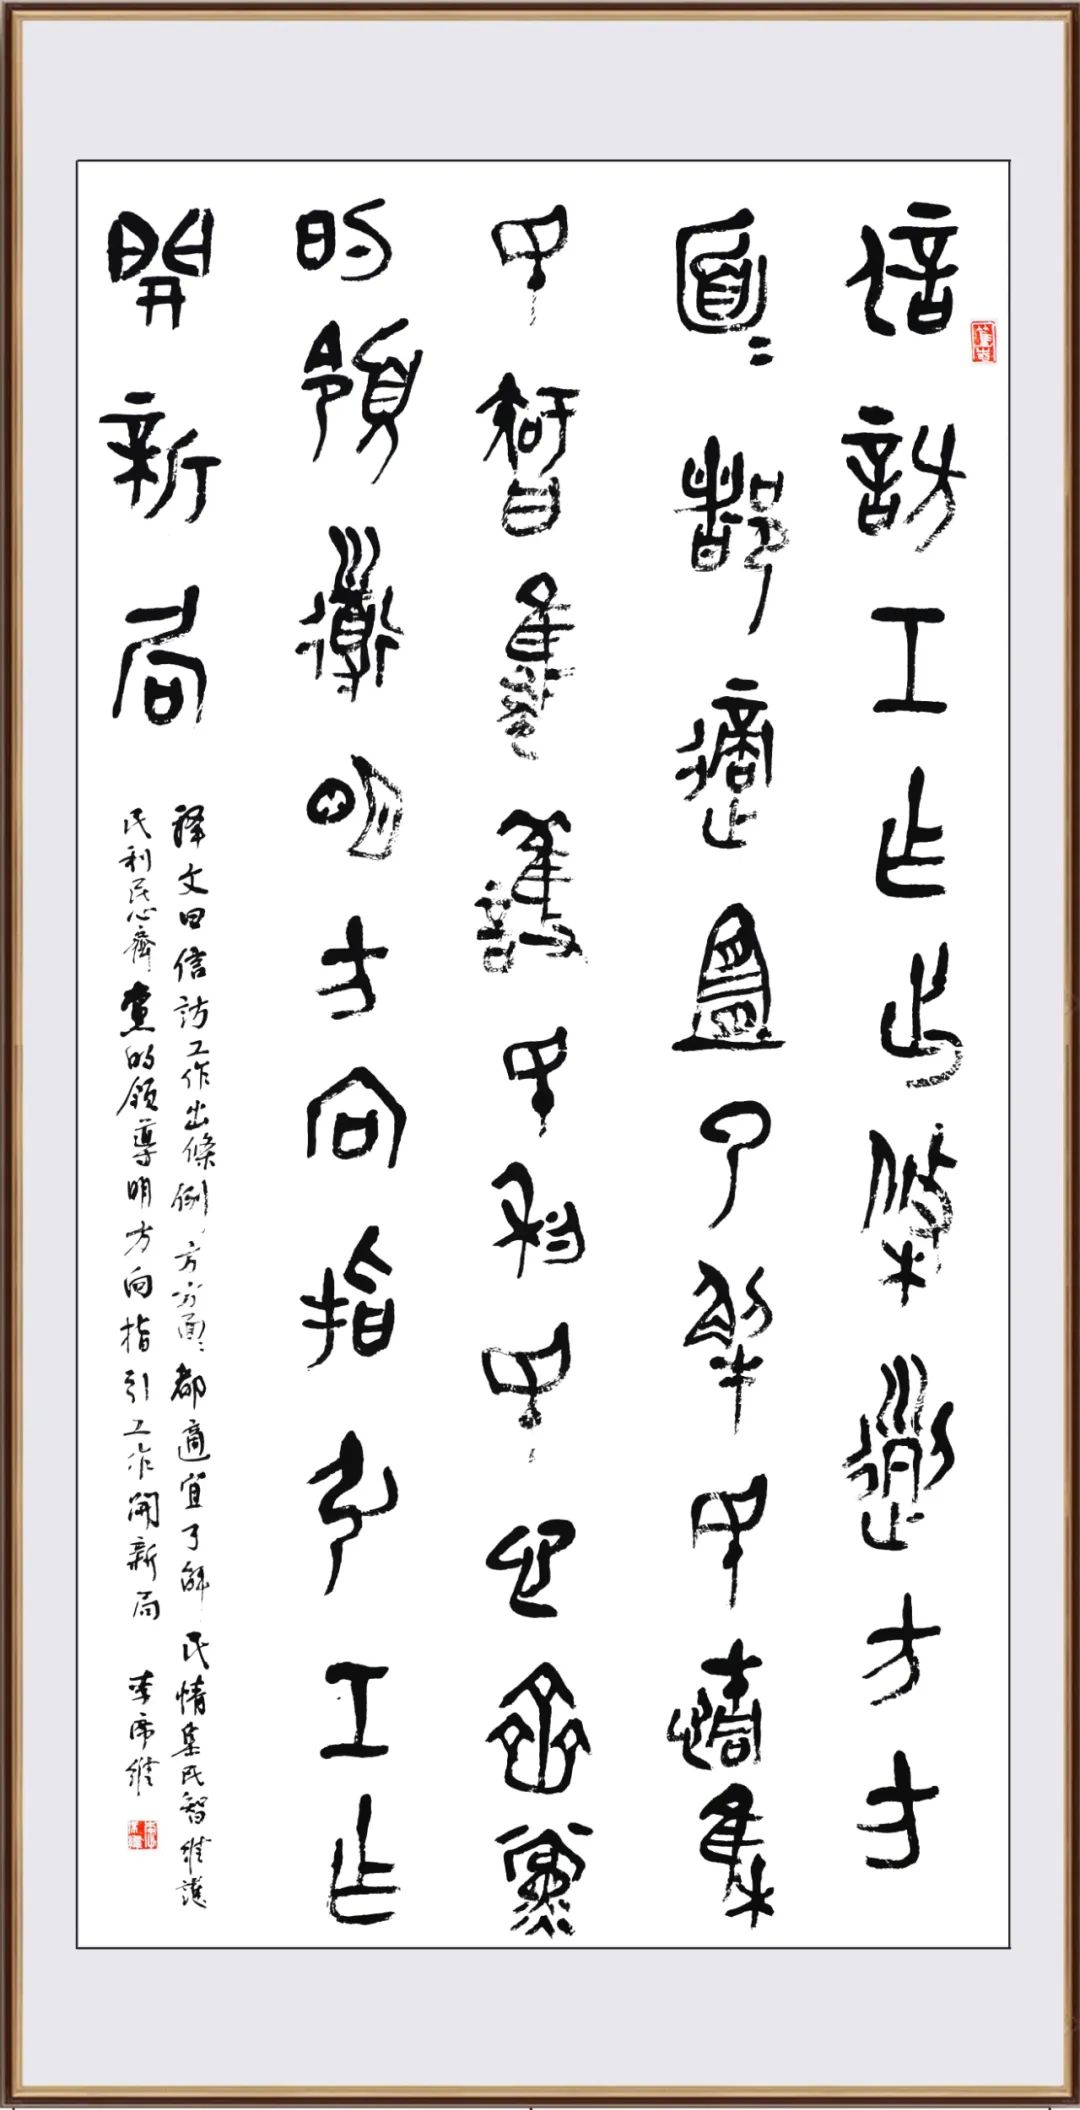 信訪工作出條例方方
面〻都適宜了解民情集
民智維護民利民心齊黨
的領導明方向指引工作
開新局
释文曰信訪工作出條例方方面〻都適宜了解民情集民智維護
民利民心齊黨的領導明方向指引工作開新局 李席維